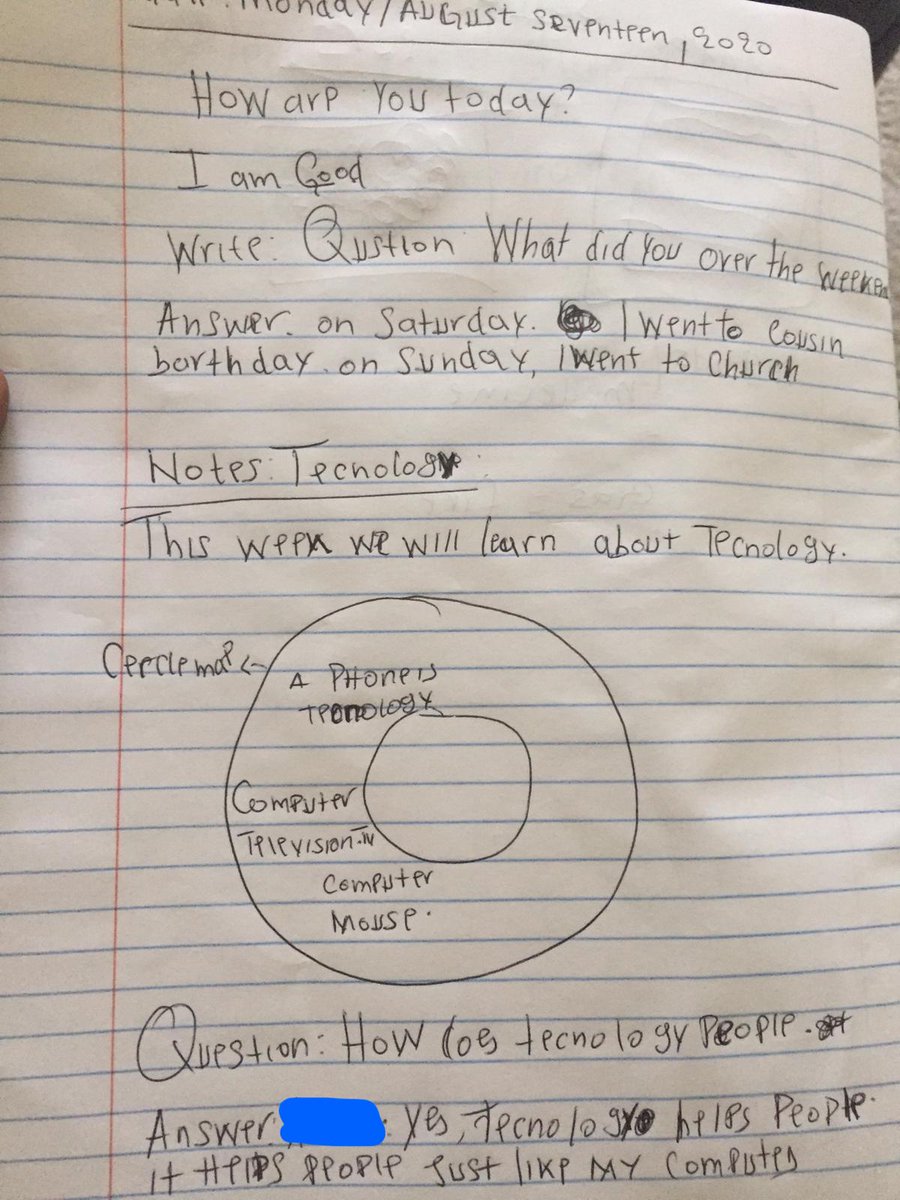 Monday/August seventeen, 2020
How are You today?
I am Good
Write: Qustion What did you over the weeken
Answer. on Saturday. I went to cousin
borthday. on Sunday, I went to Church
Notes: Tecnology:
This week we will learn about Tecnology.
Cercle map <-
A PHone is
Tecnology
Computer
Television. TV
Computer
Mouse.
Question: How does tecnology People.
Answer: : Yes, Tecnology helps People.
it Helps people just like my computer